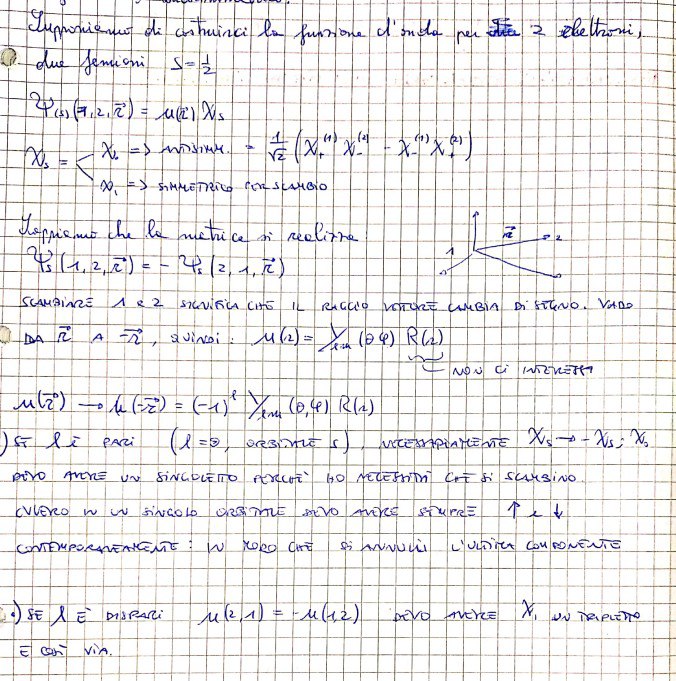 Supponiamo di costruirci la funzione d'onda per 2 elettroni,
due fermioni S=1/2
Ψ(s)(1,2,r⃗) = u(r⃗) χs
χs = < χ₀ => ANTISIMM. = 1/√2 (χ₊⁽¹⁾ χ₋⁽²⁾ − χ₋⁽¹⁾ χ₊⁽²⁾)
χ₁ => SIMMETRICO PER SCAMBIO
Sappiamo che la metrica si realizza:
1 r⃗ 2
Ψs(1,2,r⃗) = − Ψs(2,1,r⃗)
SCAMBIARE 1 e 2 SIGNIFICA CHE IL RAGGIO VETTORE CAMBIA DI SEGNO. VADO
DA r⃗ A −r⃗, QUINDI: u(r) = Yℓm(θ,φ) R(r)
NON CI INTERESSA
u(r⃗) → u(−r⃗) = (−1)^ℓ Yℓm(θ,φ) R(r)
) SE ℓ È PARI (ℓ=0, ORBITALE S), NECESSARIAMENTE χs → −χs; χ₀
DEVO AVERE UN SINGOLETTO PERCHÉ HO NECESSITÀ CHE SI SCAMBINO.
OVVERO IN UN SINGOLO ORBITALE DEVO AVERE SEMPRE ↑ e ↓
CONTEMPORANEAMENTE: IN MODO CHE SI ANNULLI L'ULTIMA COMPONENTE
•) SE ℓ È DISPARI u(2,1) = −u(1,2) DEVO AVERE χ₁ UN TRIPLETTO
E COSÌ VIA.